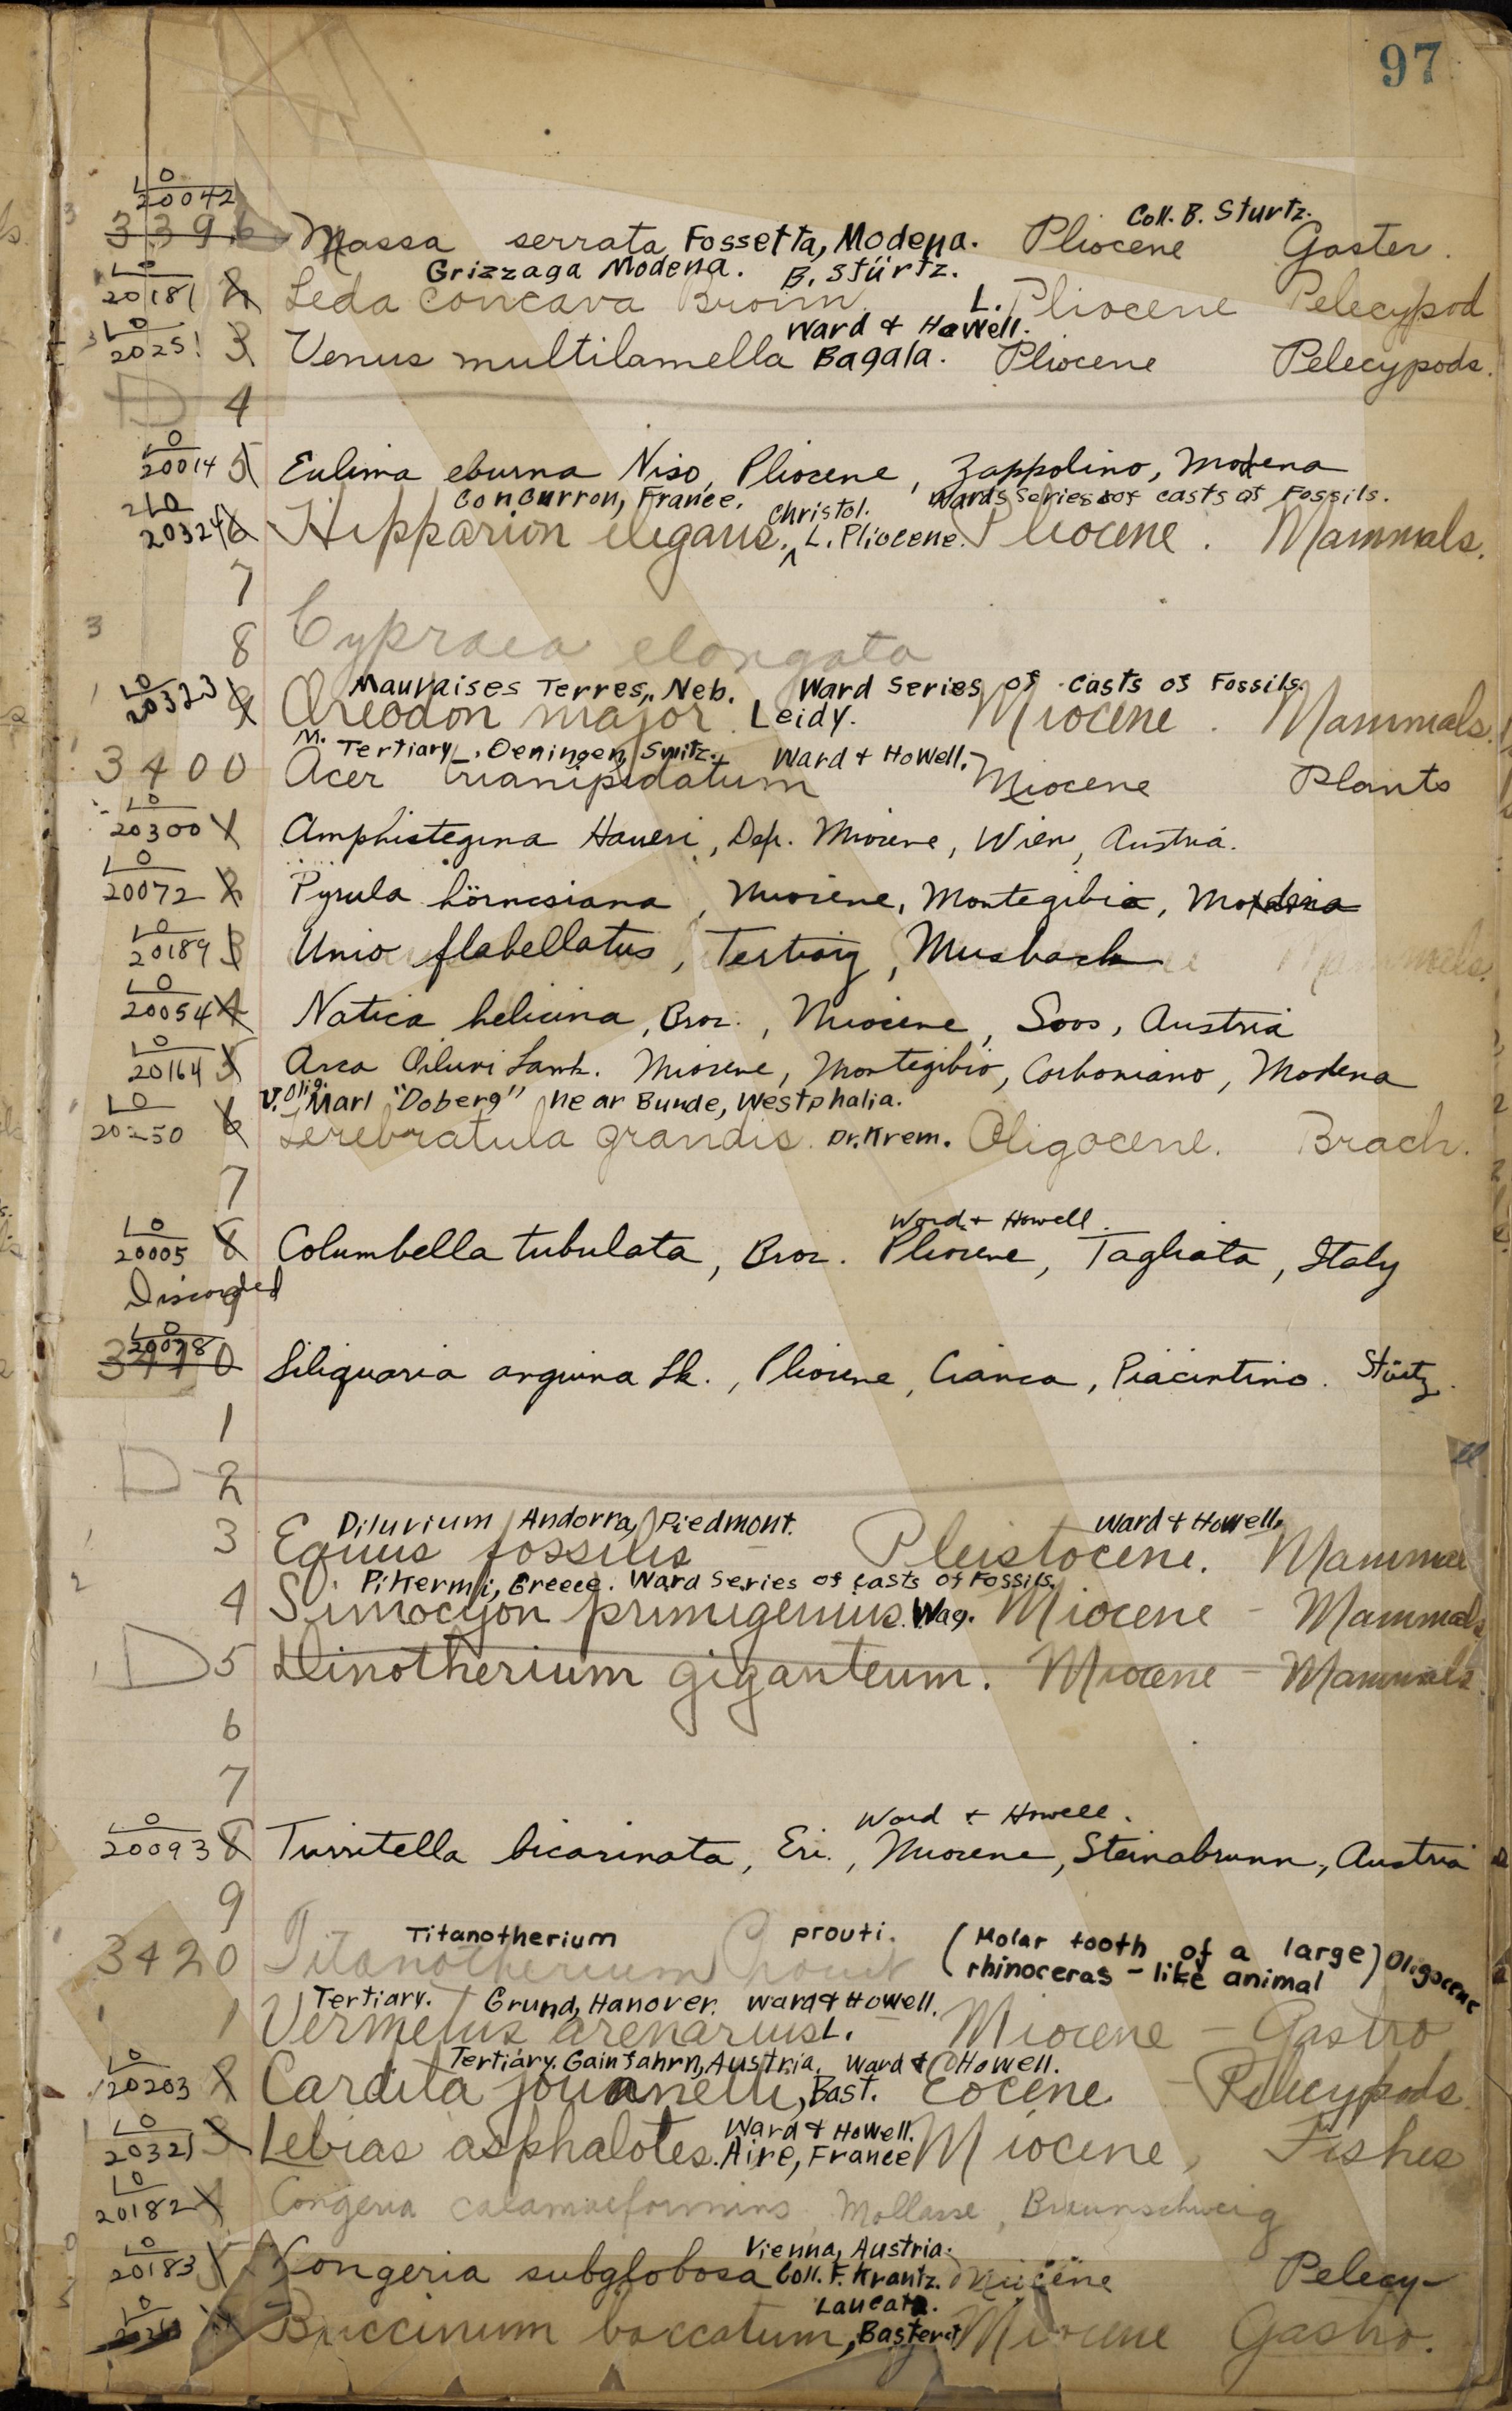 97
LO
20042
Coll. B. Sturtz.
3396 Nassa serrata Fossetta, Modena. Pliocene Gaster.
LO Grizzaga Modena. B. Stürtz.
20181 2 Leda concava Bronn L. Pliocene Pelecypod
LO Ward & Howell.
20251 3 Venus multilamella Bagala. Pliocene Pelecypods.
D 4
LO
20014 5 Eulima eburna Niso, Pliocene, Zappolino, Modena
LO Concurron, France. Christol. Wards Series of casts of Fossils.
20324 6 Hipparion elegans. ^ L. Pliocene. Pliocene. Mammals.
7
3 8 Cypraea elongata
LO Mauvaises Terres, Neb. Ward Series of Casts of Fossils.
20323 9 Oreodon major. Leidy. Miocene. Mammals.
M. Tertiary. Oeningen, Switz. Ward & Howell.
3400 Acer trianipidatum Miocene Plants
LO
20300 1 Amphistegina Haueri, Dep. Miocene, Wien, Austria.
LO
20072 2 Pyrula hörnesiana, Miocene, Montegibia, Modena
LO
20189 3 Unio flabellatus, Tertiary, Musbach Mammals.
LO
20054 4 Natica helicina, Broc., Miocene, Soos, Austria
LO
20164 5 Arca Diluvi Lamk. Miocene, Montegibio, Corboniano, Modena
LO V. Olig. Marl "Doberg" near Bunde, Westphalia.
20250 6 Terebratula grandis. Dr. Krem. Oligocene. Brach.
7
LO Ward & Howell.
20005 8 Columbella tubulata, Broc. Pliocene, Tagliata, Italy
Discarded 9
LO
20078
3410 Siliquaria anguina Lk., Pliocene, Cianca, Piacintino. Stürtz.
1
D 2
Diluvium Andorra, Piedmont. Ward & Howell.
3 Equus fossilis Pleistocene. Mammal
2 Pikermi, Greece. Ward Series of Casts of Fossils.
4 Simocyon primigenius. Wag. Miocene - Mammals
D 5 Dinotherium giganteum. Miocene - Mammals.
6
7
LO Ward & Howell.
20093 8 Turritella bicarinata, Eri., Miocene, Steinabrunn, Austria
9
Titanotherium prouti. (Molar tooth of a large
3420 Titanotherium Prouti rhinoceras-like animal) Oligocene
Tertiary. Grund, Hanover. Ward & Howell.
1 Vermetus arenarius L. Miocene - Gastro
LO Tertiary. Gainfahrn, Austria. Ward & Howell.
20203 2 Cardita jouanetti, Bast. Eocene - Pelecypods.
LO Ward & Howell.
20321 3 Lebias asphalotes. Aire, France Miocene, Fishes
LO
20182 4 Congeria calamaeformins, Mollasse, Braunschweig
LO Vienna, Austria.
20183 5 Kongeria subglobosa Coll. F. Krantz. Miocene Pelecy-
LO Laucata.
6 Buccinum baccatum, Basterot Miocene Gastro.